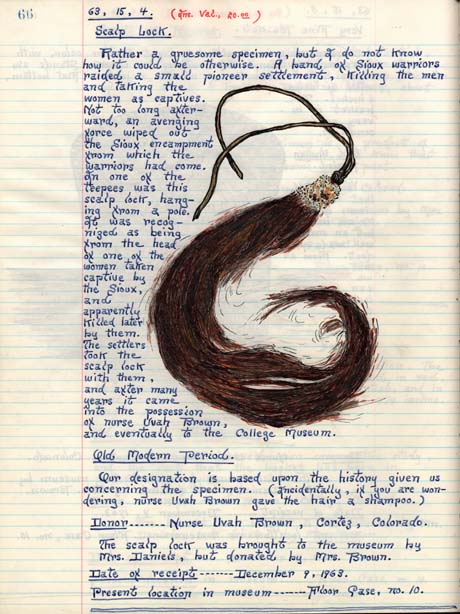 66
63, 15, 4. (Inc. Val., 20.00)
Scalp Lock.
Rather a gruesome specimen, but I do not know
how it could be otherwise. A band of Sioux warriors
raided a small pioneer settlement, killing the men
and taking the
women as captives.
Not too long after-
ward, an avenging
force wiped out
the Sioux encampment
from which the
warriors had come.
In one of the
teepees was this
scalp lock, hang-
ing from a pole.
It was recog-
nized as being
from the head
of one of the
women taken
captive by
the Sioux,
and
apparently
killed later
by them.
The settlers
took the
scalp lock
with them,
and after many
years it came
into the possession
of nurse Uvah Brown,
and eventually to the College Museum.
Old Modern Period.
Our designation is based upon the history given us
concerning the specimen. (Incidentally, if you are won-
dering, nurse Uvah Brown gave the hair a shampoo.)
Donor------- Nurse Uvah Brown, Cortez, Colorado.
The scalp lock was brought to the museum by
Mrs. Daniels, but donated by Mrs. Brown.
Date of receipt------- December 9, 1963.
Present location in museum------- Floor Case, no. 10.